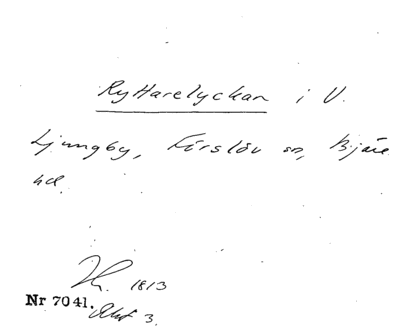 Ryttarelyckan i V.
Ljungby, Förslöv sn, Bjäre
hd.
1813
Nr 7041.
Akt 3.